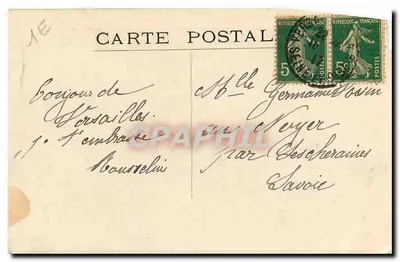 1E
CARTE POSTALE
REPUBLIQUE FRANÇAISE
REPUBLIQUE FRANÇAISE
5c
5c
POSTES
Bonjour de
Versailles.
Je t'embrasse
Rousselin
Mlle Germaine
au Noyer
par Lescheraines
Savoie